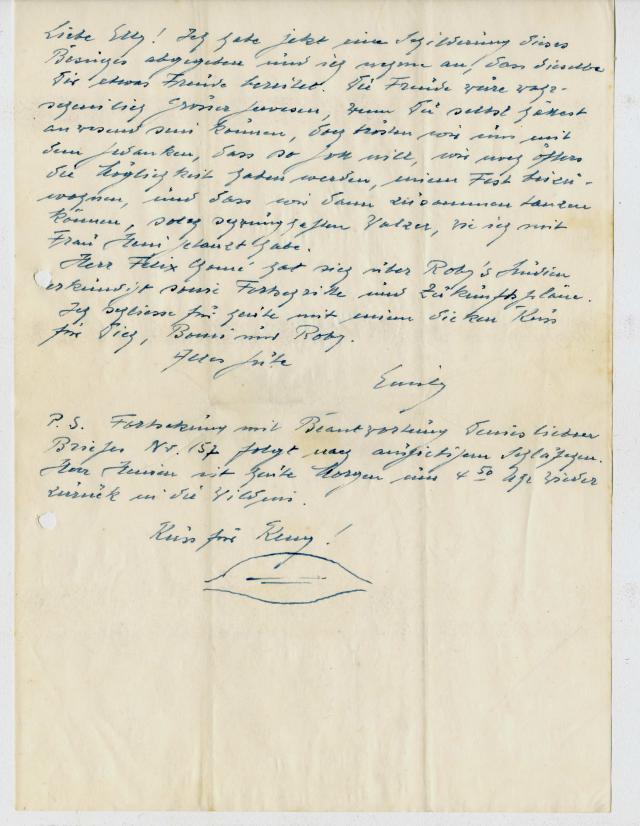 Liebe Elly! Ich habe jetzt eine Schilderung dieses
Besuches abgegeben und ich nehme an, dass dieselbe
Dir etwas Freude bereitet. Die Freude wäre wahr-
scheinlich grosser gewesen, wenn Du selbst hättest
anwesend sein können, doch trösten wir uns mit
dem Gedanken, dass so Gott will, wir noch öfters
die Möglichkeit haben werden, einem Fest beizu-
wohnen, und dass wir dann zusammen tanzen
können, solch schwunghaften Walzer, wie ich mit
Frau getanzt habe.
Herr Felix hat sich über Roby's Studien
erkundigt sowie Fortschritte und Zukunftspläne.
Ich schliesse für heute mit einem dicken Kuss
für Dich, Bomi und Roby.
Alles Gute
Emily
P.S. Fortsetzung mit Beantwortung Deines lieben
Briefes Nr. 157 folgt nach Schlafen.
Herr ist heute Morgen um 4 50 Uhr wieder
zurück in die Wildnis.
Kuss für !